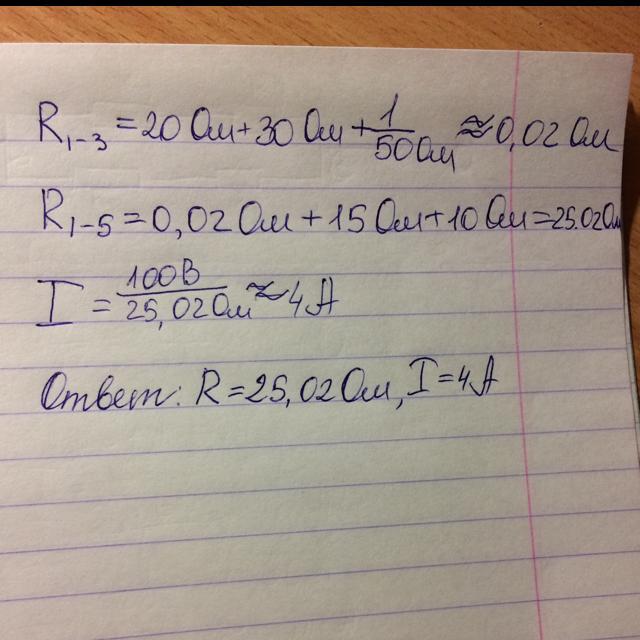 R₁₋₃ = 20 Ом + 30 Ом + 1/50 Ом ≈ 0,02 Ом
R₁₋₅ = 0,02 Ом + 15 Ом + 10 Ом = 25.02 Ом
I = 100В/25,02 Ом ≈ 4 А
Ответ: R = 25,02 Ом, I = 4 А